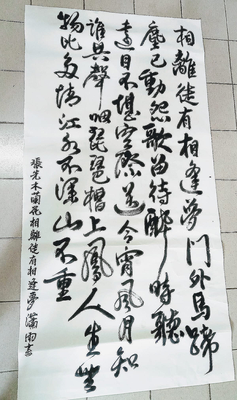 相離徒有相逢夢門外馬蹄
塵已動怨歌留待醉時聽
遠目不堪空際送今宵風月知
誰共聲咽琵琶槽上鳳人生無
物比多情江水不深山不重
張先木蘭花相離徒有相逢夢瀟雨書